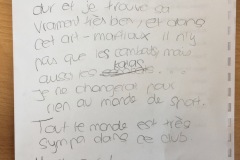 dur et je trouve ça
vraiment très bien, et dans
cet art-martiaux il n'y
pas que les combats, mais
aussi les katas
je ne changerai pour
rien au monde de sport.
Tout le monde est très
sympa dans ce club.